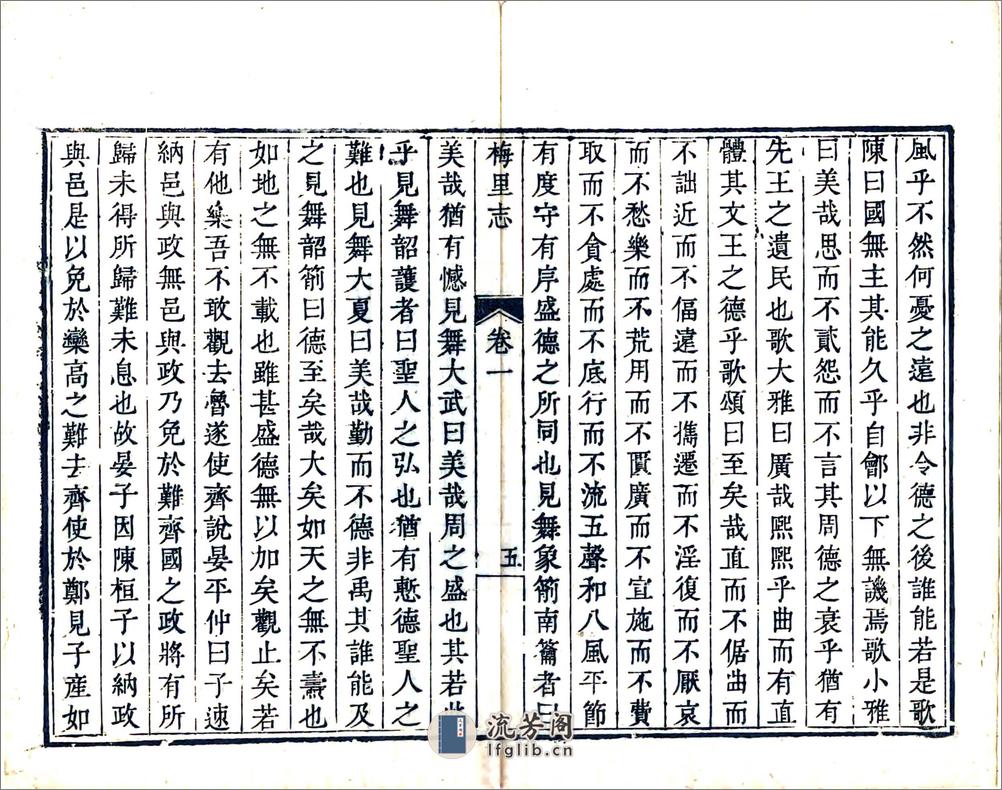 風乎不然何憂之遠也非令德之後誰能若是歌
陳曰國無主其能久乎自鄶以下無譏焉歌小雅
曰美哉思而不貳怨而不言其周德之衰乎猶有
先王之遺民也歌大雅曰廣哉熙熙乎曲而有直
體其文王之德乎歌頌曰至矣哉直而不倨曲而
不詘近而不偪遠而不攜遷而不淫復而不厭哀
而不愁樂而不荒用而不匱廣而不宣施而不費
取而不貪處而不底行而不流五聲和八風平節
有度守有序盛德之所同也見舞象箾南籥者曰
梅里志
卷一
五
美哉猶有憾見舞大武曰美哉周之盛也其若此
乎見舞韶護者曰聖人之弘也猶有慙德聖人之
難也見舞大夏曰美哉勤而不德非禹其誰能及
之見舞韶箾曰德至矣哉大矣如天之無不燾也
如地之無不載也雖甚盛德無以加矣觀止矣若
有他樂吾不敢觀去魯遂使齊說晏平仲曰子速
納邑與政無邑與政乃免於難齊國之政將有所
歸未得所歸難未息也故晏子因陳桓子以納政
與邑是以免於欒高之難去齊使於鄭見子產如
流芳阁
lfglib.cn